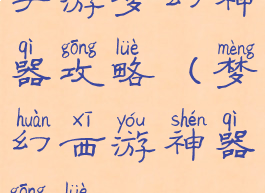 游梦幻神
qì gōng lüè mèng
器攻略（梦
huàn xī yóu shén qì
幻西游神器
gōng lüè